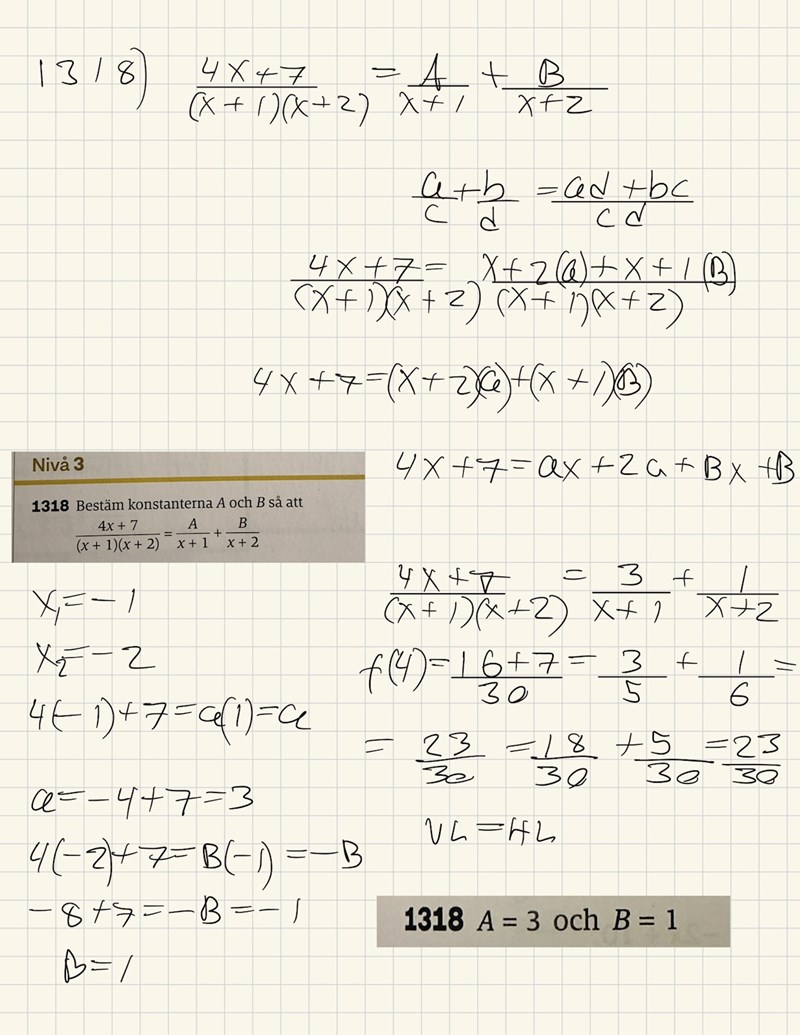 1318) (4x+7)/((x+1)(x+2)) = A/(x+1) + B/(x+2)
a/c + b/d = (ad+bc)/(cd)
(4x+7)/((x+1)(x+2)) = (x+2(a)+x+1(B))/((x+1)(x+2))
4x+7=(x+2)(a)+(x+1)(B)
4x+7=ax+2a+Bx+B
Nivå 3
1318 Bestäm konstanterna A och B så att
(4x + 7)/((x + 1)(x + 2)) = A/(x + 1) + B/(x + 2)
x₁=-1
x₂=-2
4(-1)+7=a(1)=a
a=-4+7=3
4(-2)+7=B(-1)=-B
-8+7=-B=-1
B=1
(4x+7)/((x+1)(x+2)) = 3/(x+1) + 1/(x+2)
f(4)=(16+7)/30 = 3/5 + 1/6 =
= 23/30 = 18/30 + 5/30 = 23/30
VL=HL
1318 A = 3 och B = 1